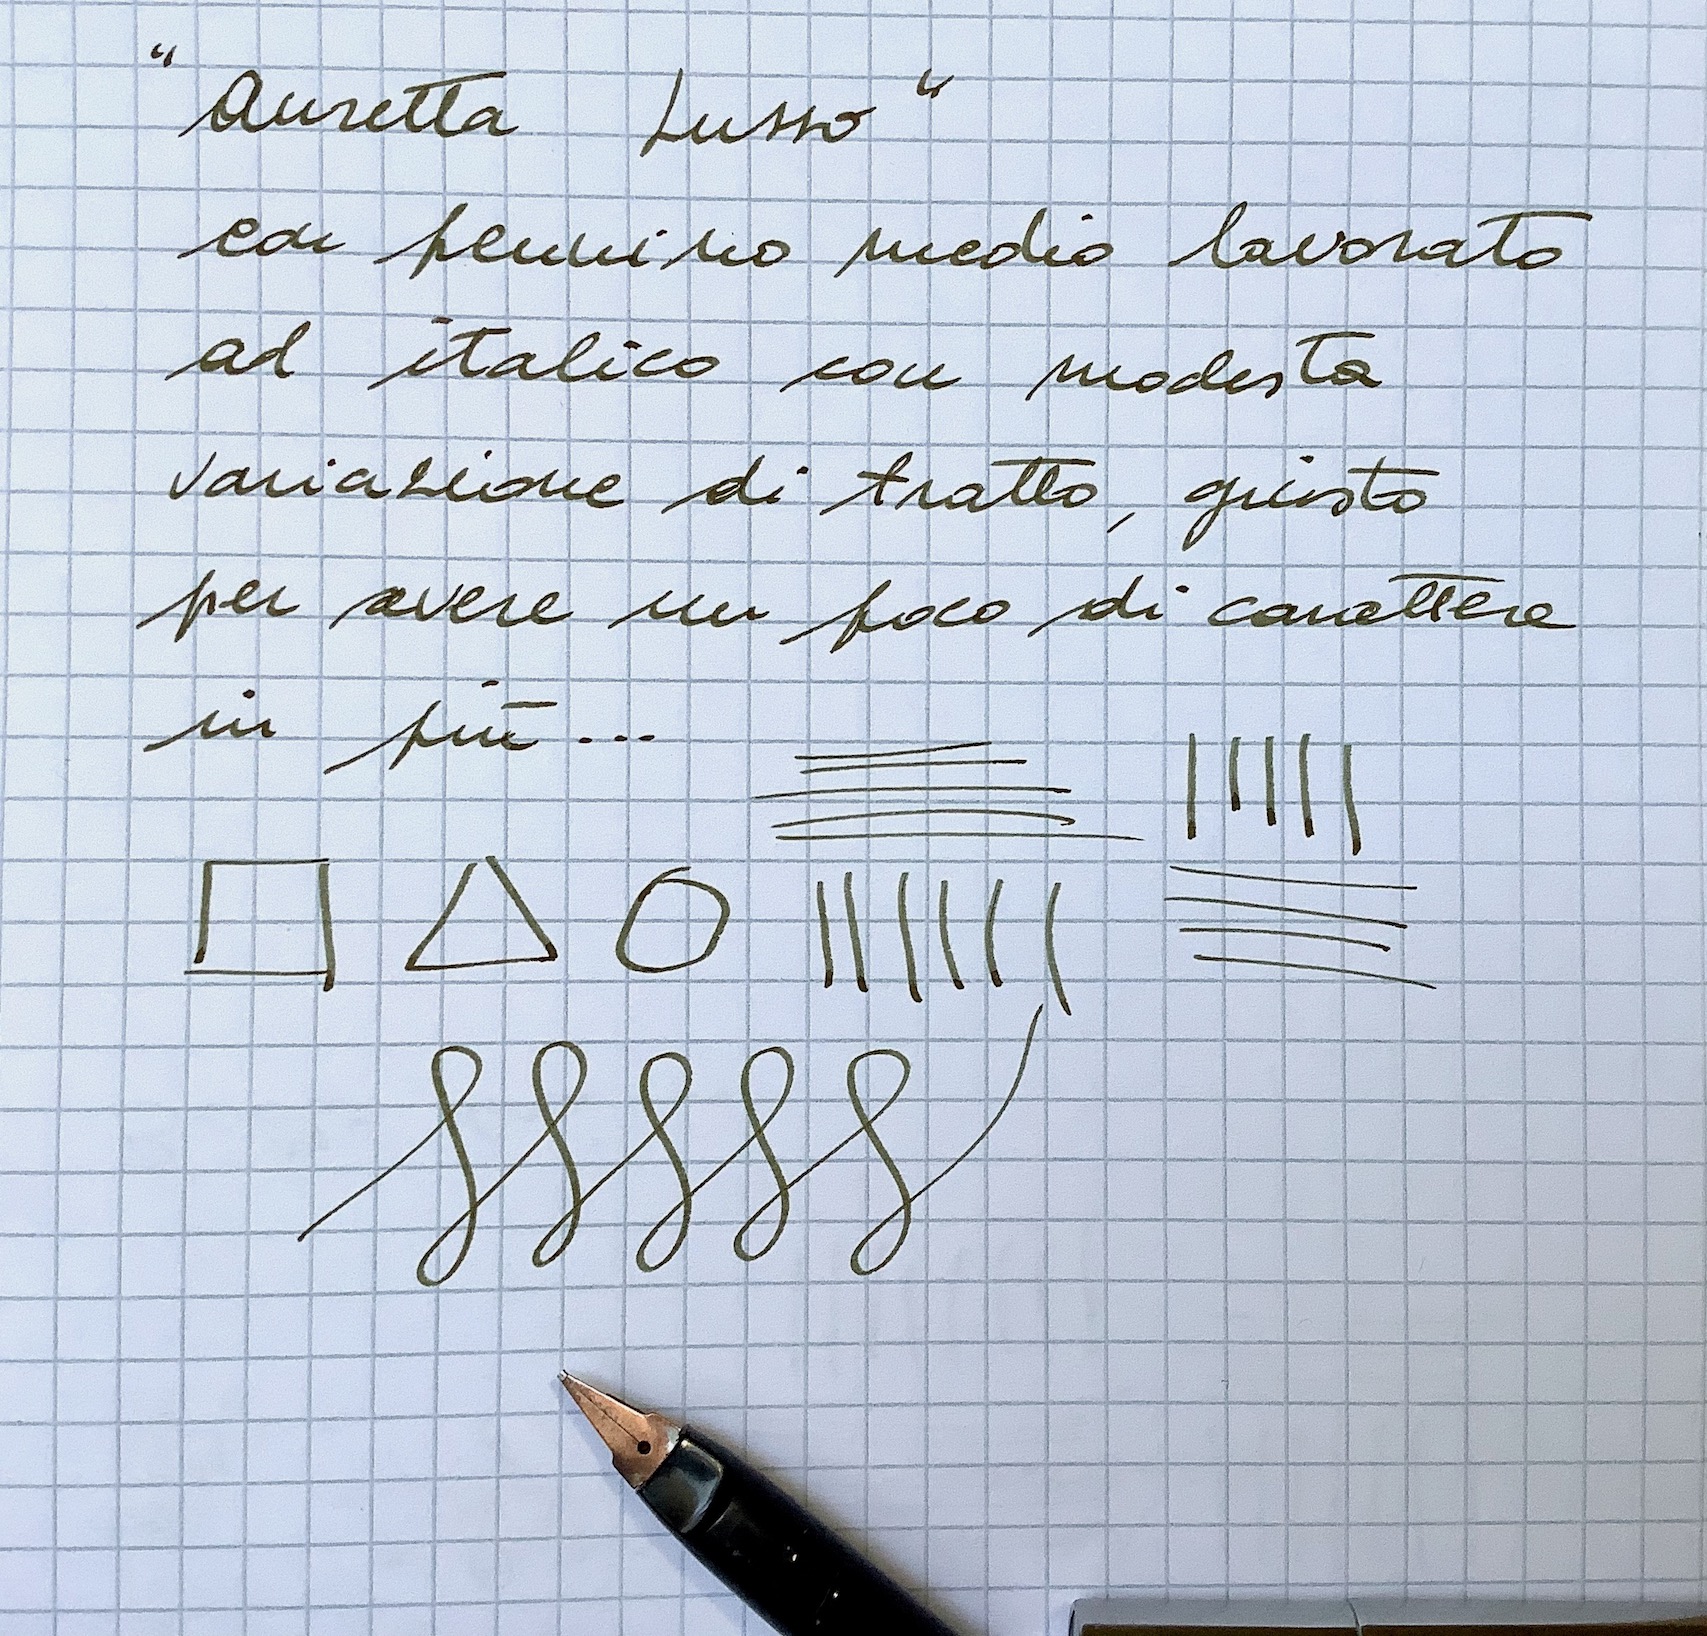 "Auretta Lusso"
con pennino medio lavorato
ad italico con modesta
variazione di tratto, giusto
per avere un poco di carattere
in più...